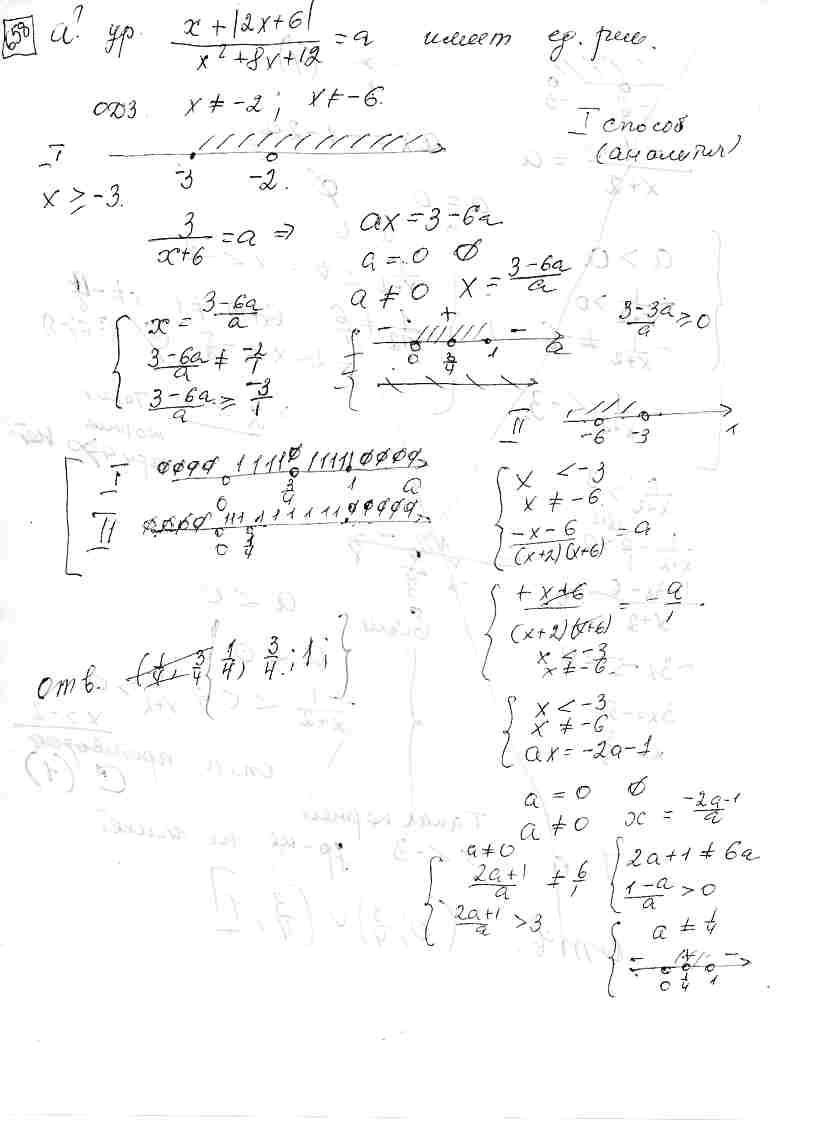 658 a? ур. (x + |2x+6|)/(x² + 8x + 12) = a имеет ед. реш.
ОДЗ x ≠ -2; x ≠ -6.
I способ
(аналитич)
I
-3 -2.
x ≥ -3.
3/(x+6) = a ⇒ ax = 3 - 6a
a = 0 ∅
a ≠ 0 x = (3-6a)/a
{ x = (3-6a)/a
(3-6a)/a ≠ -2/1
(3-6a)/a ≥ -3/1
(3-3a)/a ≥ 0
- + -
0 3/4 1 a
II -6 -3
I ∅∅∅∅ 1111∅ 11111 ∅∅∅∅
0 3/4 1 a
II ∅∅∅∅ 111 1111111 ∅∅∅∅∅
0 1/4
{ x < -3
x ≠ -6
(-x-6)/((x+2)(x+6)) = a
{ (+x+6)/((x+2)(x+6)) = -a/1
x < -3
x ≠ -6
отв. { 1/4; 3/4; 1; }
{ x < -3
x ≠ -6
ax = -2a-1
a = 0 ∅
a ≠ 0 x = (-2a-1)/a
{ a ≠ 0
(2a+1)/a ≠ 6/1
(2a+1)/a > 3
{ 2a+1 ≠ 6a
(1-a)/a > 0
{ a ≠ 1/4
- + -
0 1/4 1